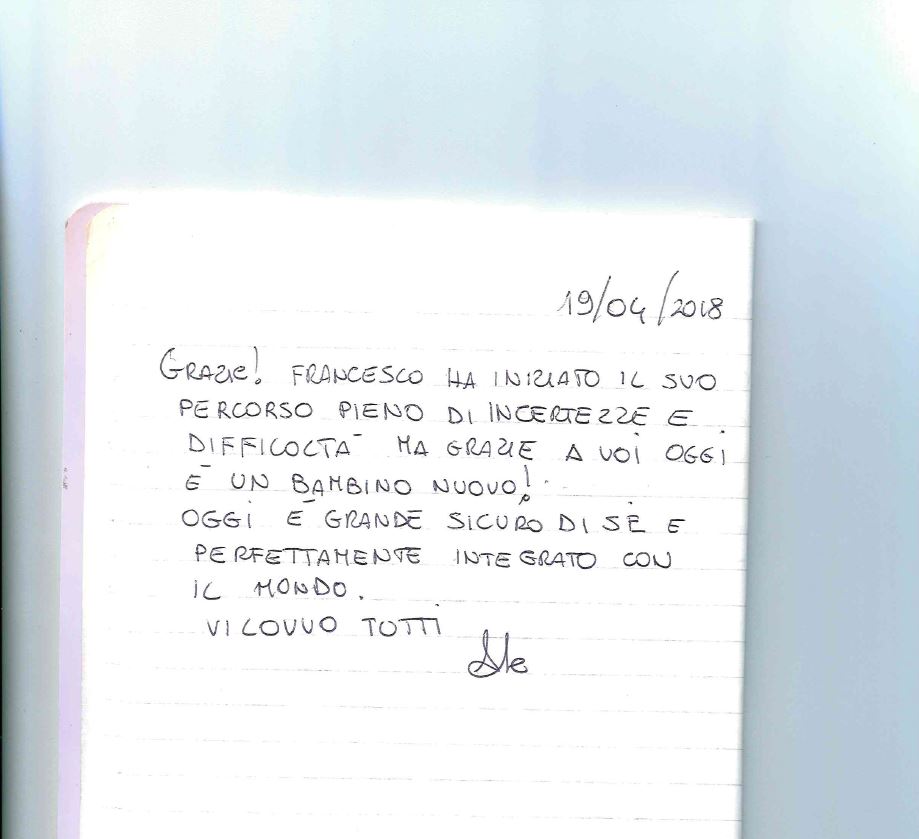 19/04/2018
GRAZIE! FRANCESCO HA INIZIATO IL SUO
PERCORSO PIENO DI INCERTEZZE E
DIFFICOLTÀ MA GRAZIE A VOI OGGI
È UN BAMBINO NUOVO!
OGGI È GRANDE SICURO DI SÈ E
PERFETTAMENTE INTEGRATO CON
IL MONDO.
VI LOVVO TOTTI
Ale